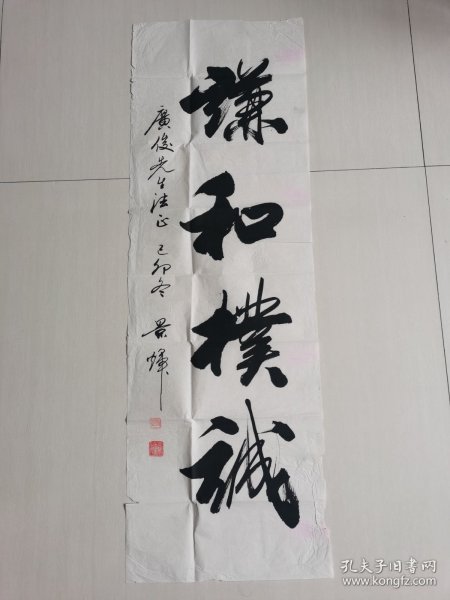 謙和樸誠
廣俊先生法正 己卯冬 景輝
孔夫子旧书网
www.kongfz.com